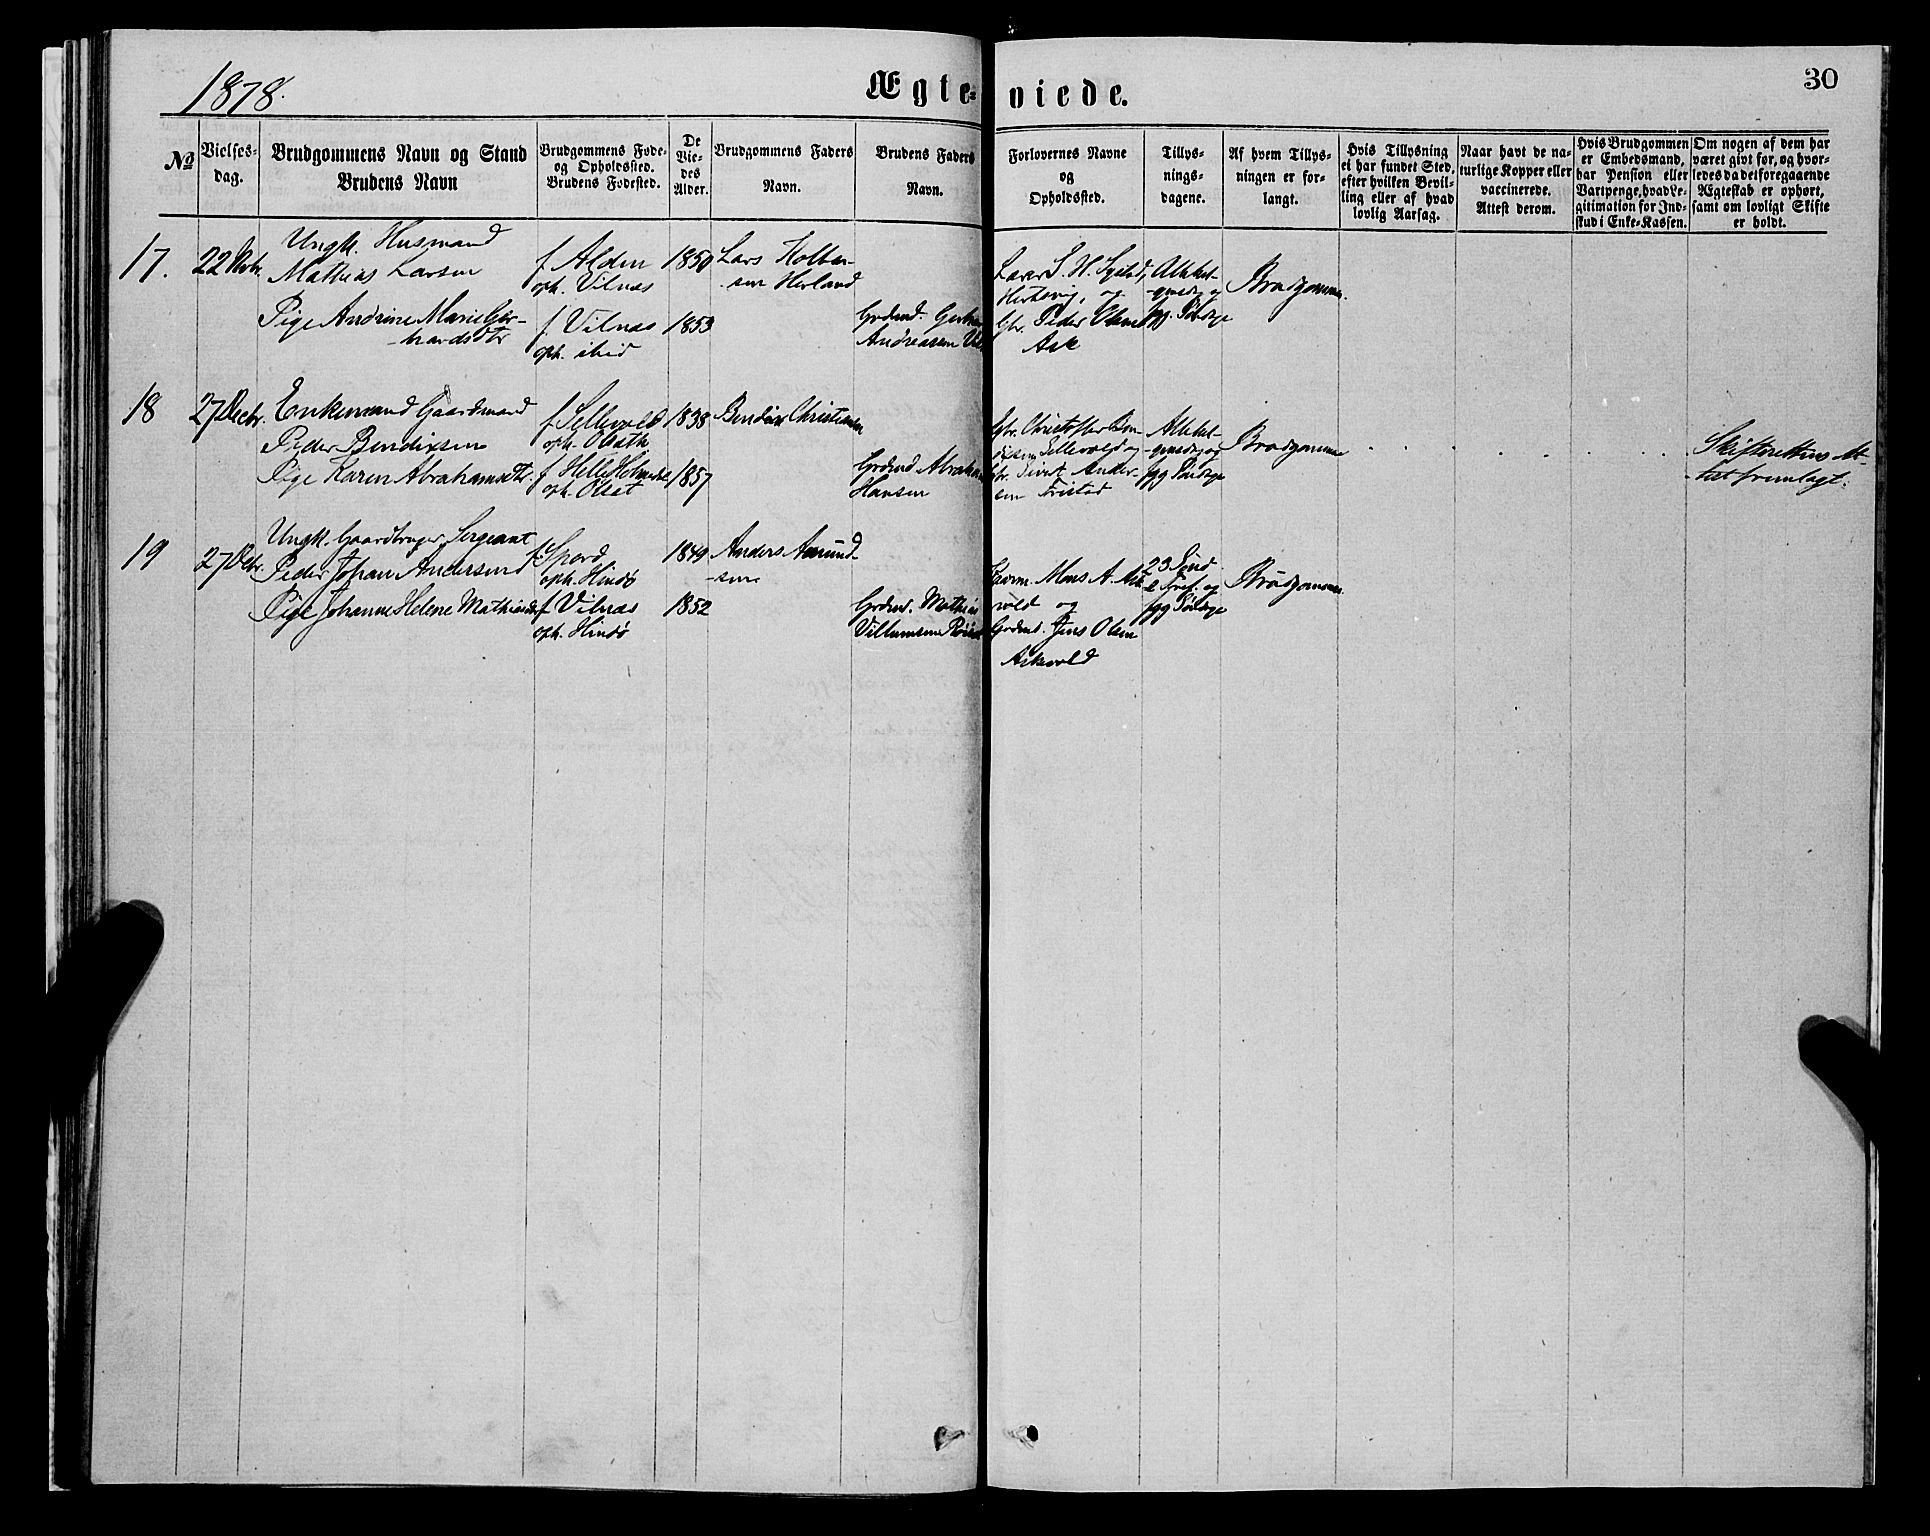 1878.
Ægteviede.
30
No
Vielses-
dag.
Brudgommens Navn og Stand
Brudens Navn
Brudgommens Føde-
og Opholdssted.
Brudens Fødested.
De
Vie-
des
Alder.
Brudgommens Faders
Navn.
Brudens Faders
Navn.
Forlovernes Navne
og
Opholdssted.
Tillys-
nings-
dagene.
Af hvem Tillys-
ningen er for-
langt.
Hvis Tillysning
ei har fundet Sted,
efter hvilken Bevil-
ling eller af hvad
lovlig Aarsag.
Naar havt de na-
turlige Kopper eller
vaccinerede.
Attest derom.
Hvis Brudgommen
er Embedsmand,
har Pension eller
Vartpenge, hvad Le-
gitimation for Ind-
skud i Enke-Kassen.
Om nogen af dem har
været givt før, og hvor-
ledes da det foregaaende
Ægteskab er ophørt,
samt om lovligt Skifte
er holdt.
17.
22 Nvbr.
Ungk. Husmand
Mathias Larsen
Pige Andrine Marie Ger-
hardsdtr
f Alden
oph. Vilnæs
f. Vilnæs
oph. ibid
1850
1853
Lars Kolben-
sen Herland
Grdmd. Gerhard
Andreasen
Lærer S. H. Systad,
Herlevig, og
Gbr. Peder Olsen
Ask
Allehel-
gensdg og
fgg. Søndge
Brudgommen.
18
27 Decbr.
Enkemand Gaardmand
Peder Bendixsen
Pige Karen Abrahamsdtr.
f Sellevold
oph. Olsæth
f Helle
oph. Olset
1838
1857
Bendix Christiansen
Grdmd Abraham
Hansen
Gbr. Christoffer Ben-
dixsen Sellevold og
Gbr. Sivert Ander-
sen Tvistad
Allehel-
gensdg og
fgg Søndge
Brudgommen
Skifterettens At-
test fremlagt.
19
27 Dcbr.
Ungk. Gaardbruger Sergeant
Peder Johan Andersen
Pige Johanne Helene Mathiasdtr
f. Spord
oph. Hindø
f Vilnæs
oph. Hindø
1849
1852
Anders Amund-
sen
Grdmd. Mathias
Villumsen
Mons A. Ask-
vold og
Grdmd. Jens Olsen
Askvold
23 Sønd
e Tref. og
fgg Søndge
Brudgommen.